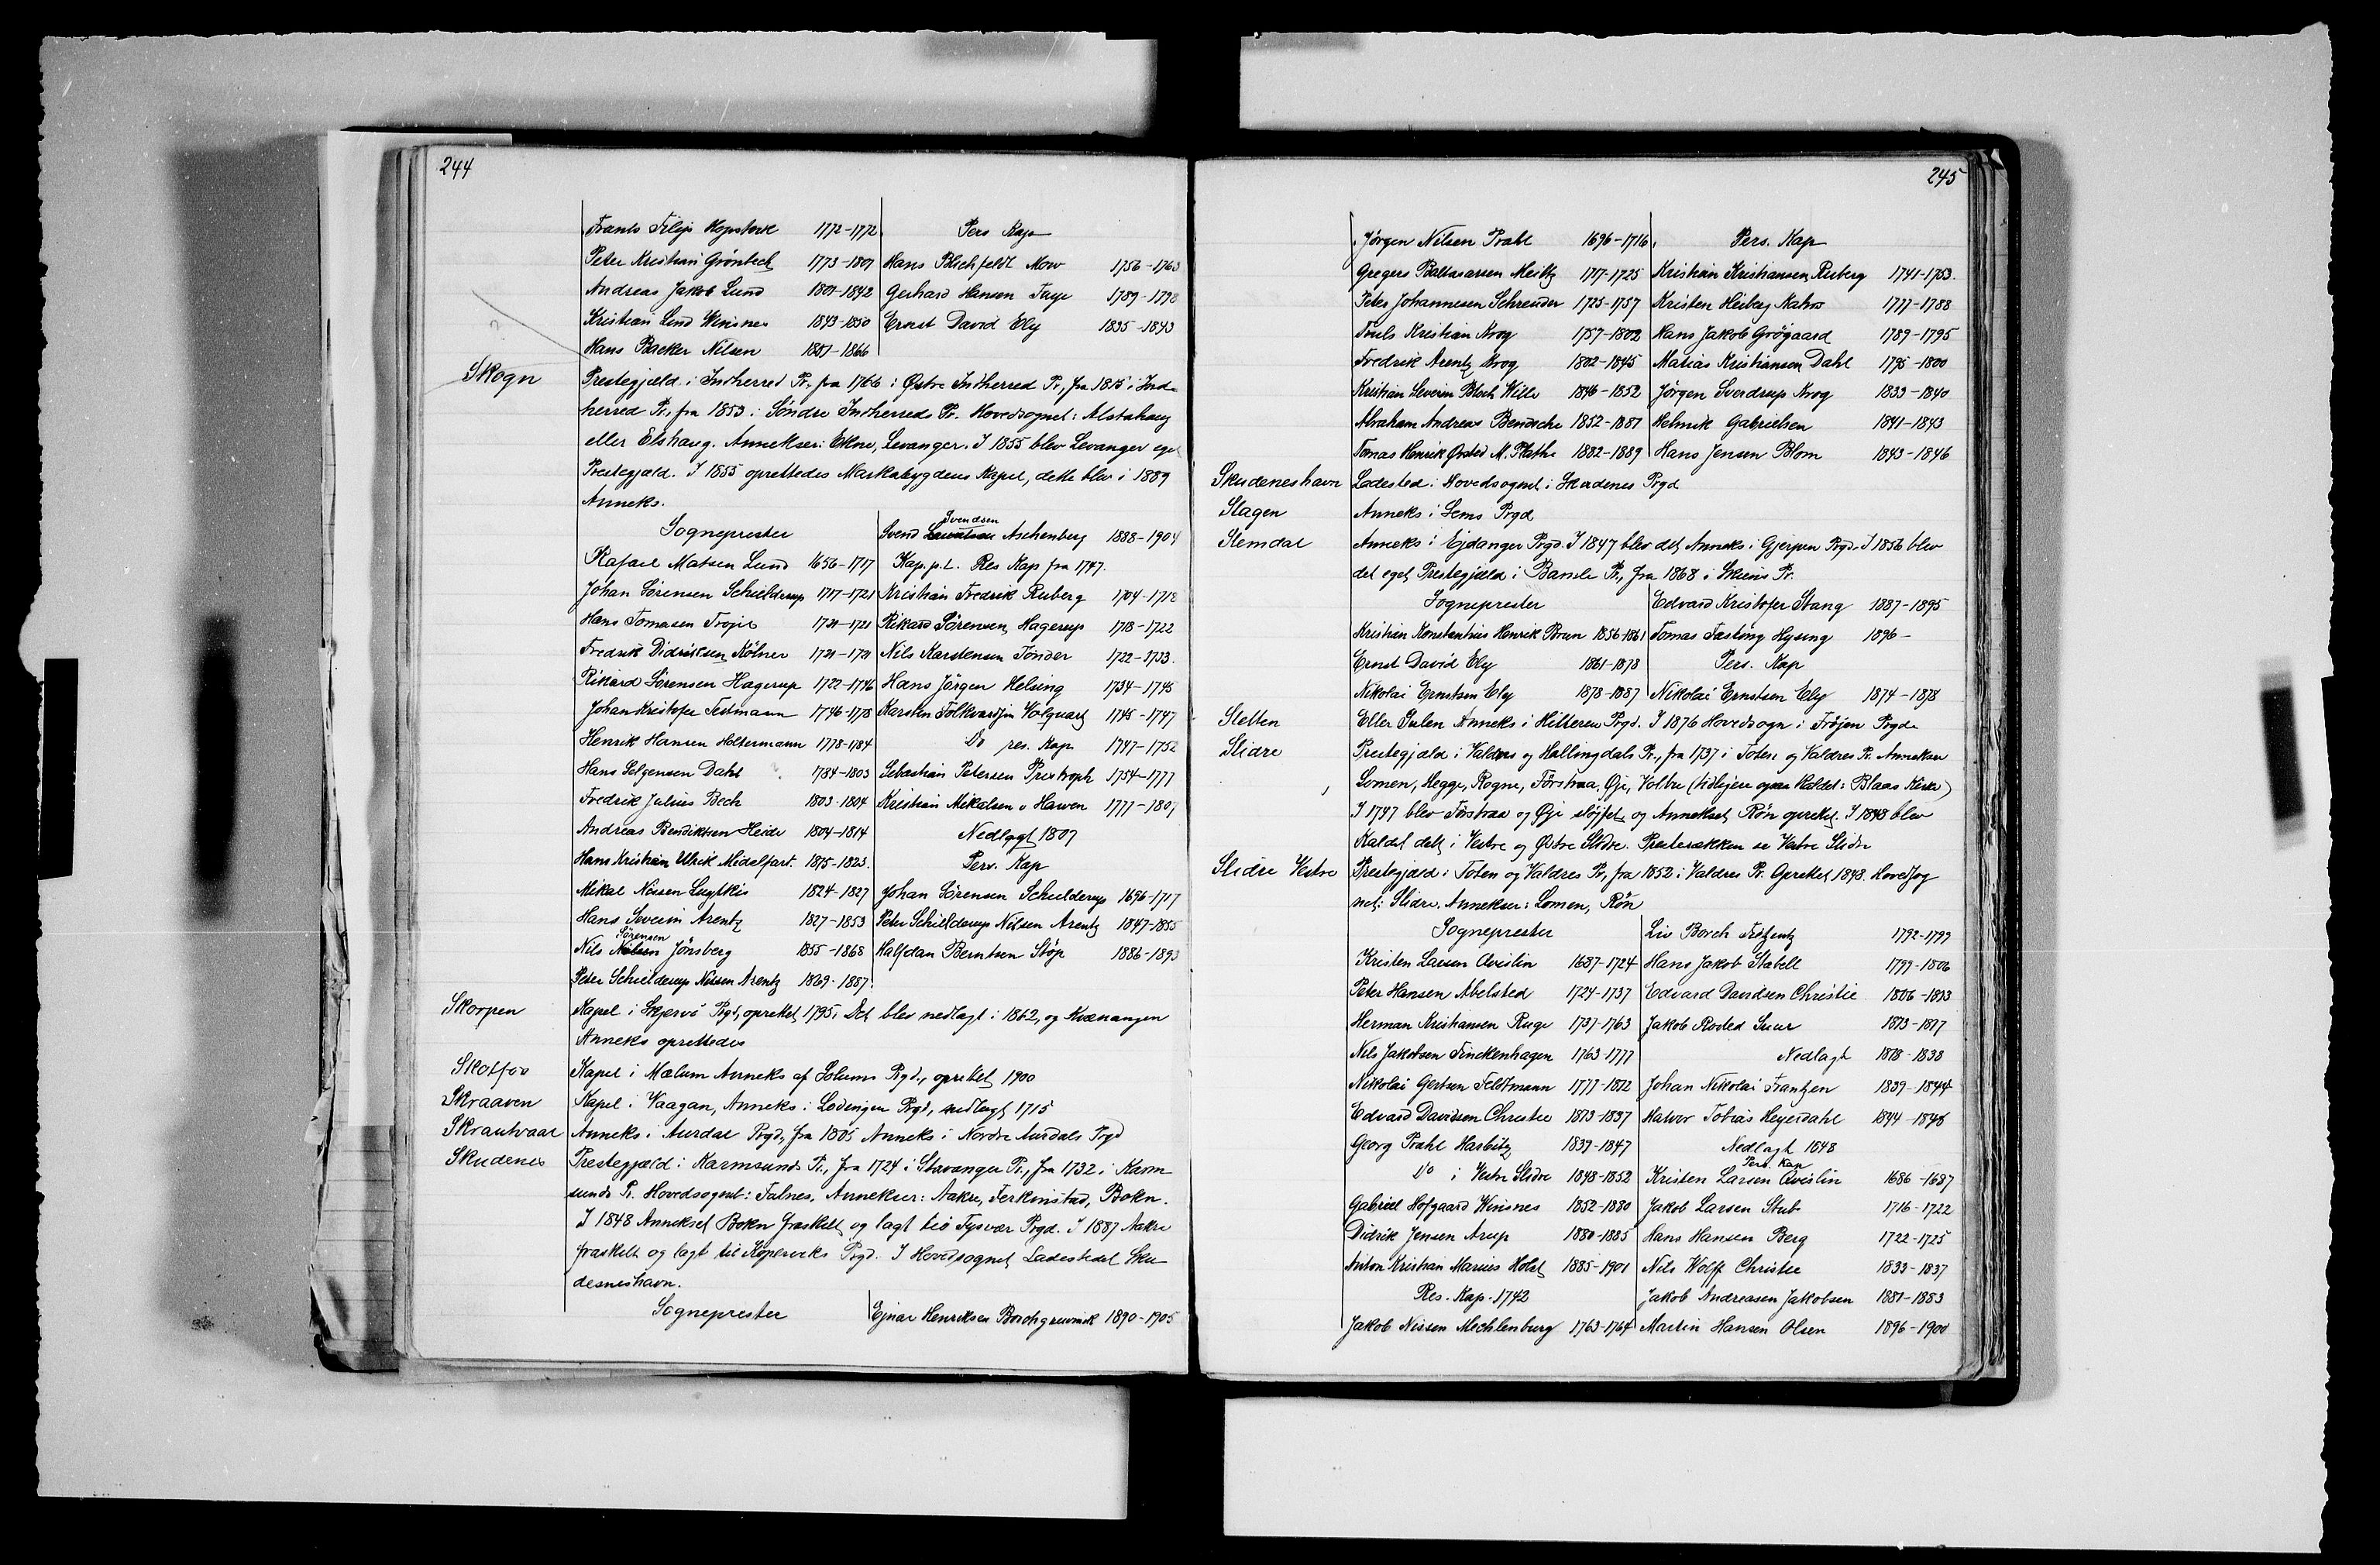 244
Frants Filip Hopstock 1772-1772 Pers Kap
Peter Kristian Grönbech 1773-1801 Hans Blichfeldt Mow 1756-1763
Andreas Jakob Lund 1801-1842 Gerhard Hansen Faye 1789-1798
Kristian Lund Winsnes 1843-1850 Ernst David Ely 1835-1843
Hans Backer Nilsen 1851-1866
Skogn Prestegjæld i Indherred Pr, fra 1766 i Østre Indherred Pr, fra 1815 i Ind-
herred Pr., fra 1853 i Söndre Indherred Pr. Hovedsognet: Alstahaug
eller Elshaug. Annekser: Ekne, Levanger. I 1855 blev Levanger eget
Prestegjæld. I 1855 oprettedes Markabygdens Kapel, dette blev i 1889
Anneks.
Sogneprester Svend Svendsen Aschenberg 1888-1904
Rafael Matsen Lund 1656-1717 Kap. p. L. Res Kap fra 1747.
Johan Sörensen Schielderup 1717-1721 Kristian Fredrik Ruberg 1704-1718
Hans Tomasen Trojel 1721-1721 Rikard Sörensen Hagerup 1718-1722
Fredrik Didriksen Kölner 1721-1721 Nils Karstensen Tönder 1722-1733.
Rikard Sörensen Hagerup 1722-1746 Hans Jörgen Helsing 1734-1745
Johan Kristofer Testmann 1746-1778 Karsten Folkvardsen Volquartz 1745-1747
Henrik Hansen Holtermann 1778-1784 Do res. Kap 1747-1752
Hans Selgensen Dahl 1784-1803 Sebastian Petersen Pristroph 1754-1777
Fredrik Julius Bech 1803-1804 Kristian Mikalsen v Hawen 1777-1807
Andreas Bendiktsen Heide 1804-1814 Nedlagt 1807
Hans Kristian Ulrik Midelfart. 1815-1823. Pers. Kap
Mikal Nissen Lugtkis 1824-1827 Johan Sörensen Schielderup 1696-1717
Hans Severin Arentz 1827-1853 Peter Schielderup Nilsen Arentz 1847-1855
Nils Sörensen Jönsberg 1855-1868 Halfdan Berntsen Stöp 1886-1893
Peter Schielderup Nissen Arentz 1869-1887.
Skorpen Kapel i Skjervö Prgd, oprettet 1795. Det blev nedlagt i 1862, og Kvænangen
Anneks oprettedes
Skotfos Kapel i Mælum Anneks af Solums Prgd., oprettet 1900
Skraaven Kapel i Vaagan, Anneks i Lodingen Prgd, nedlagt 1715
Skrautvaal Anneks i Aurdal Prgd, fra 1805 Anneks i Nordre Aurdals Prgd
Skudenes Prestegjæld i Karmsunds Pr., fra 1724 i Stavanger Pr., fra 1732 i Karm-
sunds Pr. Hovedsognet: Falnes, Annekser: Aakre, Ferkinstad, Bokn.
I 1848 Annekset Bokn fraskilt og lagt til Tysvær Prgd. I 1887 Aakre
fraskilt og lagt til Kopervik Prgd. I Hovedsognet Ladestedet Sku-
desneshavn.
Sogneprester Ejnar Henriksen Borchgrevink 1890-1905
245
Jörgen Nilsen Prahl 1696-1716 Pers. Kap
Gregers Baltasarsen Meitz 1717-1725 Kristian Kristiansen Ruberg 1741-1753.
Peter Johannesen Schreuder 1725-1757 Kristen Heiberg Aahs 1777-1788
Truls Kristian Krog 1757-1802 Hans Jakob Grögaard 1789-1795
Fredrik Arentz Krog 1802-1845 Matias Kristiansen Dahl 1795-1800
Kristian Severin Bloch Wille 1846-1852 Jörgen Sverdrup Krog 1833-1840
Abraham Andreas Bendsche 1852-1881 Helmik Gabrielsen 1841-1843
Tomas Henrik Örsted M. Plathe 1882-1889 Hans Jensen Blom 1843-1846
Skudeneshavn Ladested i Hovedsognet i Skudenes Prgd
Slagen Anneks i Sems Prgd
Slemdal Anneks i Ejdanger Prgd. I 1847 blev det Anneks i Gjerpen Prgd. I 1856 blev
det eget Prestegjæld i Bamle Pr, fra 1868 i Skiens Pr.
Sogneprester Edvard Kristofer Stang 1887-1895
Kristian Konstantius Henrik Brun 1856-1861 Tomas Fasting Hysing 1896-
Ernst David Ely 1861-1878 Pers. Kap
Nikolai Ernstsen Ely 1878-1887 Nikolai Ernstsen Ely 1874-1878
Sletten Eller Sulen Anneks i Hitteren Prgd. I 1876 Hovedsogn i Fröjen Prgd.
Slidre Prestegjæld i Valdres og Hallingdals Pr., fra 1737 i Toten og Valdres Pr. Annekser
Lomen, Hegge, Rogne, Förstraa, Øje, Volbu (tidligere ogsaa kaldet: Blaas Kirke)
I 1747 blev Förstraa og Øje slöjfet og Annekset Rön oprettet. I 1848 blev
Kaldet delt i Vestre og Østre Slidre. Presterækken se Vestre Slidre
Slidre Vestre Prestegjæld i Toten og Valdres Pr, fra 1852 i Valdres Pr. Oprettet 1848. Hovedsog
net: Slidre. Annekser: Lomen, Rön
Sogneprester Liv Borch 1792-1799
Kristen Larsen Qvislin 1687-1724 Hans Jakob Stabell 1799-1806
Peter Hansen Abelsted 1724-1737 Edvard Davidsen Christie 1806-1813
Herman Kristiansen Ruge 1737-1763 Jakob Rosted Suur 1813-1817
Nils Jakobsen Finckenhagen 1763-1777 Nedlagt 1818-1838
Nikolai Gertsen Feldtmann 1777-1812 Johan Nikolai Frantzen 1839-1844
Edvard Davidsen Christie 1813-1837 Halvor Tobias Heyerdahl 1844-1848
Georg Prahl Harbitz 1839-1847 Nedlagt 1848
Pers. Kap
Do i Vestre Slidre 1848-1852 Kristen Larsen Qvislin 1686-1687
Gabriel Hofgaard Winsnes 1852-1880 Jakob Larsen Stub 1716-1722
Didrik Jensen Arup 1880-1885 Hans Hansen Berg 1722-1725
Anton Kristian Marius Holst 1885-1901 Nils Wolff Christie 1833-1837
Res. Kap. 1742 Jakob Andreasen Jakobsen 1881-1883
Jakob Nissen Mechlenburg 1763-1764 Martin Hansen Olsen 1896-1900